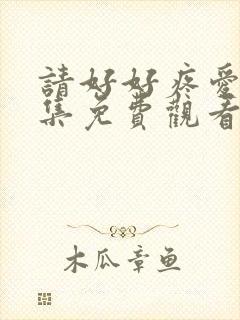 請好好疼愛
集免費觀看
木瓜章鱼